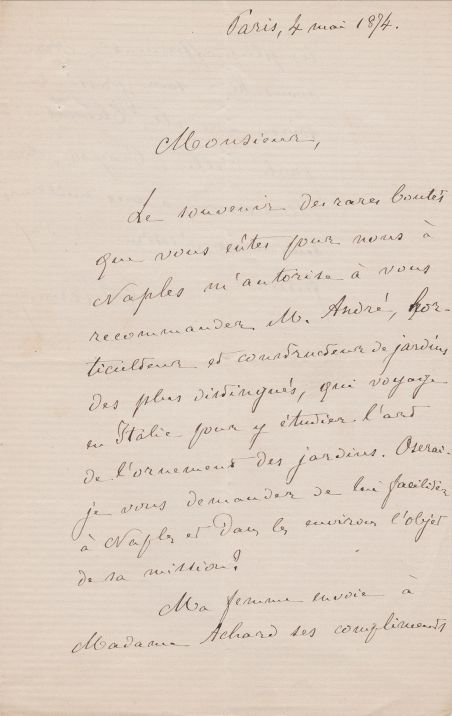 Paris, 4 mai 1874.
Monsieur,
Le souvenir des rares bontés
que vous eûtes pour nous à
Naples m'autorise à vous
recommander M. André, hor-
ticulteur et constructeur de jardins
des plus distingués, qui voyage
en Italie pour y étudier l'art
de l'ornement des jardins. Oserai-
je vous demander de lui faciliter
à Naples et dans les environs l'objet
de sa mission?
Ma femme envoie à
Madame Achard ses compliments